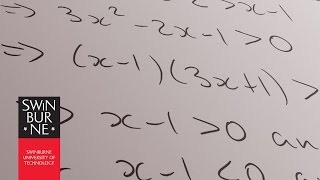 > x-1
⇒ 3x² - 2x - 1 > 0
⇒ (x-1)(3x+1) >
⇒ x-1 > 0 an
x-1 < 0 a
SWiN
BUR
* NE *
SWINBURNE
UNIVERSITY OF
TECHNOLOGY